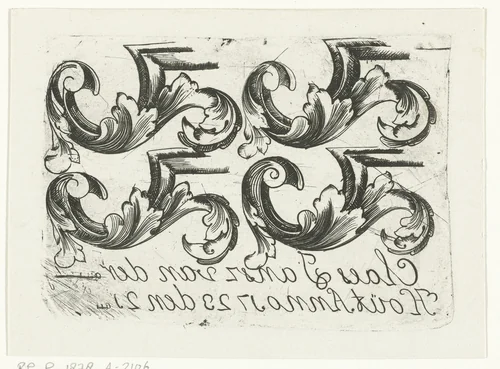 Claes Jansz van der
Hoút Anno 1723 den 21
RP-P-1878-A-2106